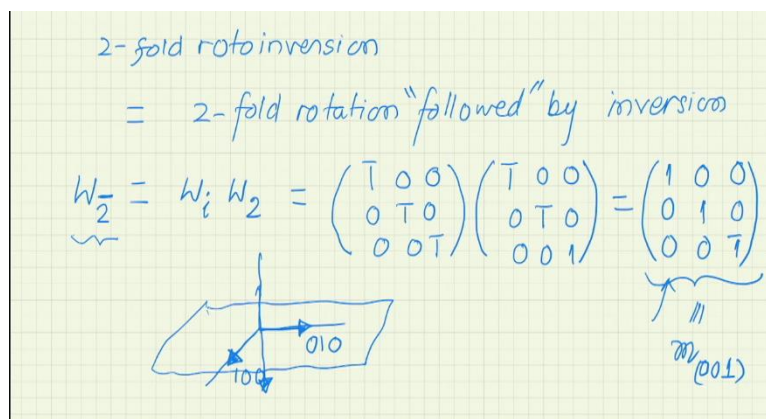 2-fold rotoinversion
= 2-fold rotation "followed" by inversion
W_2̅ = W_i W_2 = (1̅ 0 0 / 0 1̅ 0 / 0 0 1̅) (1̅ 0 0 / 0 1̅ 0 / 0 0 1) = (1 0 0 / 0 1 0 / 0 0 1̅)
010
100
m(001)